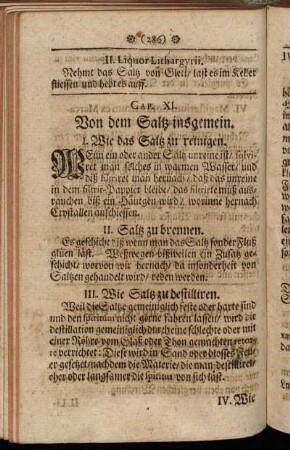 (286)
II. Liquor Lithargyrii.
Nehmt das Saltz von Glett / last es im Keller
fliessen und hebt es auff.
CAP. XI.
Von dem Saltz insgemein.
I. Wie das Saltz zu reinigen.
WEnn ein oder ander Saltz unreine ist / solvi-
ret man solches in warmen Wasser / und
daß filtriret man hernach / daß das unreine
in dem filtrir-Pappier bleibe / das filtrirte muß aus-
rauchen biß ein Häutgen wird / worinne hernach
Crystallen anschiessen.
II. Saltz zu brennen.
Es geschicht diß wenn man das Saltz sonder Fluß
glüen läst. Weßwegen bißweilen ein Zusatz ge-
schicht / worvon wir hernach da insonderheit von
Saltzen gehandelt wird / reden werden.
III. Wie Saltz zu destilliren.
Weil die Saltze gemeiniglich feste oder harte sind
und den spiritum nicht gerne fahren lassen / wird die
destillation gemeiniglich durch eine schlechte oder mit
einer Röhre vom Glaß oder Thon gemachten retorte
verrichtet: Diese wird in Sand oder blosses Feu-
er gesetzt / nachdem die Materie / die man destilliret /
eher oder langsamer die spiritus von sich läst.
IV. Wie